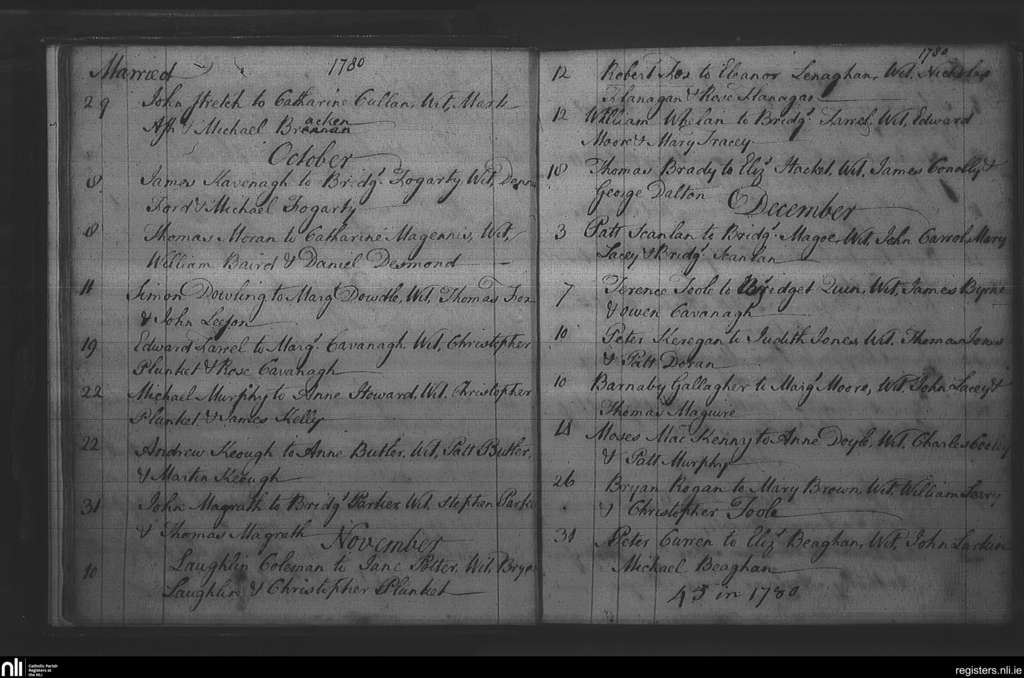 Married 1780
29 John Stretch to Catharine Cullan, Wit, Mark
Ash & Michael Bracken
October
8 James Kavenagh to Bridgt Fogarty Wit, Denis
Ford & Michael Fogarty
8 Thomas Moran to Catharine Magennis, Wit,
William Baird & Daniel Desmond
11 Simon Dowling to Margt Dowdle, Wit, Thomas Fox
& John Leeson
19 Edward Farrel to Margt Cavanagh, Wit, Christopher
Plunket & Rose Cavanagh
22 Michael Murphy to Anne Howard, Wit, Christopher
Plunket & James Kelly
22 Andrew Keough to Anne Butler, Wit, Patt Butler,
& Martin Keough
31 John Magrath to Bridgt Parker Wit, Stephen
& Thomas Magrath
November
10 Laughlin Coleman to Jane Potter, Wit, Bryan
Laughlin & Christopher Plunket
1780
12 Robert to Eleanor Lenaghan, Wit, Nicholas
Flanagan & Rose Flanagan
12 William Whelan to Bridgt Farrel, Wit, Edward
Moore & Mary Tracey
18 Thomas Brady to Elizt Hacket, Wit, James Conolly &
George Dalton
December
3 Patt Scanlan to Bridgt Magee, Wit, John Carrol, Mary
Lacey & Bridgt Scanlan
7 Terence Toole to Bridget Quin, Wit, James Byrne
& Owen Cavanagh
10 Peter Keregan to Judith Jones Wit, Thomas Jones
& Patt Doran
10 Barnaby Gallagher to Margt Moore, Wit, John Lacey &
Thomas Maguire
18 Moses Mac Kenny to Anne Doyle, Wit, Charles
& Patt Murphy
26 Bryan Rogan to Mary Brown, Wit, William
& Christopher Toole
31 Peter Curren to Elizt Beaghan, Wit, John Larkin
Michael Beaghan
45 in 1780
nli Catholic Parish
Registers at
the NLI
registers.nli.ie